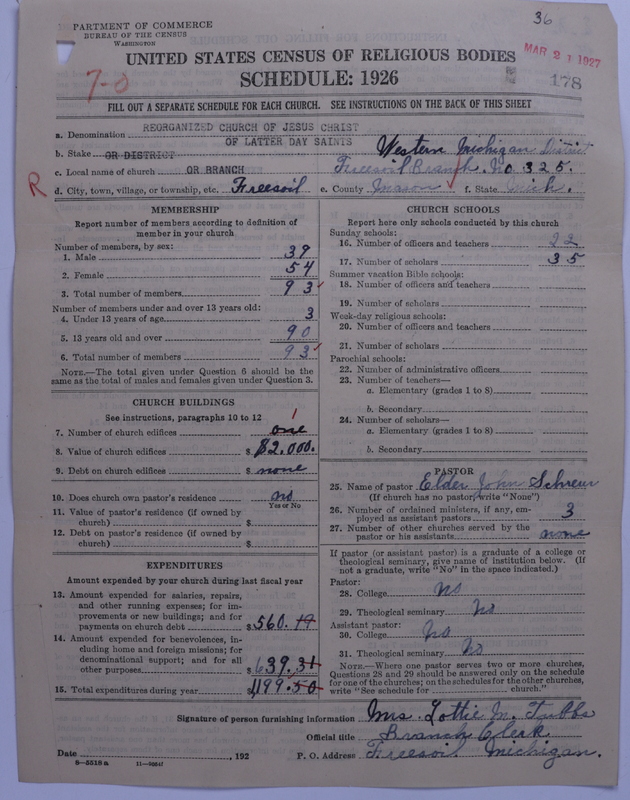 36
DEPARTMENT OF COMMERCE
BUREAU OF THE CENSUS
WASHINGTON
UNITED STATES CENSUS OF RELIGIOUS BODIES
MAR 21 1927
SCHEDULE: 1926
178
7-0
FILL OUT A SEPARATE SCHEDULE FOR EACH CHURCH. SEE INSTRUCTIONS ON THE BACK OF THIS SHEET
a. Denomination REORGANIZED CHURCH OF JESUS CHRIST
OF LATTER DAY SAINTS
b. Stake OR DISTRICT Western Michigan District
c. Local name of church OR BRANCH Freesoil Branch. No 325.
R
d. City, town, village, or township, etc. Freesoil e. County Mason f. State Mich.
MEMBERSHIP
Report number of members according to definition of
member in your church
Number of members, by sex:
1. Male 39
2. Female 54
3. Total number of members 93
Number of members under and over 13 years old:
4. Under 13 years of age 3
5. 13 years old and over 90
6. Total number of members 93
NOTE.—The total given under Question 6 should be
the same as the total of males and females given under Question 3.
CHURCH BUILDINGS
See instructions, paragraphs 10 to 12
1
7. Number of church edifices one
8. Value of church edifices $ $2.000.
9. Debt on church edifices $ none
10. Does church own pastor's residence no
Yes or No
11. Value of pastor's residence (if owned by
church) $
12. Debt on pastor's residence (if owned by
church) $
EXPENDITURES
Amount expended by your church during last fiscal year
13. Amount expended for salaries, repairs,
and other running expenses; for im-
provements or new buildings; and for
payments on church debt $560.19
14. Amount expended for benevolences, in-
cluding home and foreign missions; for
denominational support; and for all
other purposes $639.31
15. Total expenditures during year $1199.50
CHURCH SCHOOLS
Report here only schools conducted by this church
Sunday schools:
16. Number of officers and teachers 22
17. Number of scholars 35
Summer vacation Bible schools:
18. Number of officers and teachers
19. Number of scholars
Week-day religious schools:
20. Number of officers and teachers
21. Number of scholars
Parochial schools:
22. Number of administrative officers
23. Number of teachers—
a. Elementary (grades 1 to 8)
b. Secondary
24. Number of scholars—
a. Elementary (grades 1 to 8)
b. Secondary
PASTOR
25. Name of pastor Elder John Schreur
(If church has no pastor, write "None")
26. Number of ordained ministers, if any, em-
ployed as assistant pastors 3
27. Number of other churches served by the
pastor or his assistants none
If pastor (or assistant pastor) is a graduate of a college or
theological seminary, give name of institution below. (If
not a graduate, write "No" in the space indicated.)
Pastor:
28. College no
29. Theological seminary No
Assistant pastor:
30. College no
31. Theological seminary No
NOTE.—Where one pastor serves two or more churches,
Questions 28 and 29 should be answered only on the schedule
for one of the churches; on the schedules for the other churches,
write "See schedule for church."
Signature of person furnishing information Mrs Lottie M. Tubbs
Official title Branch Clerk
Date , 192 P. O. Address Freesoil Michigan.
8—5518a